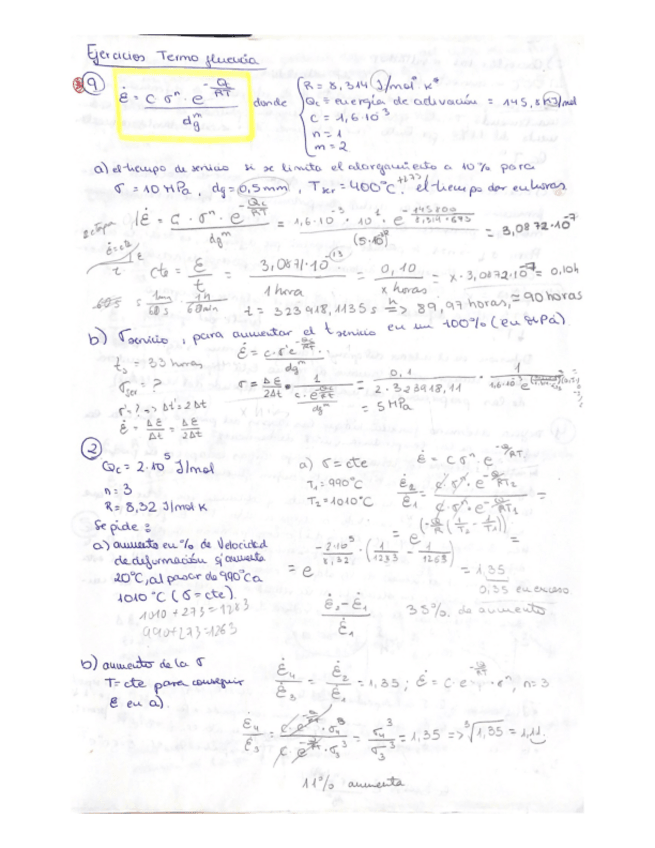 Ejercicios Termofluencia
9) ε̇ = c σⁿ · e^(-Q/RT) / dg^m donde
R = 8,314 J/mol° K°
Qc = energía de activación = 145,8 KJ/mol
C = 1,6·10³
n = 1
m = 2
a) el tiempo de servicio si se limita el alargamiento a 10% para
σ = 10 MPa, dg = 0,5mm, Tser = 400°C +273, el tiempo dar en horas
2ª etapa ε̇ = c · σⁿ · e^(-Qc/RT) / dg^m = 1,6·10⁻³ · 10¹ · e^(-145800/8,314·673) = 3,0872·10⁻⁷
cte = ε/t = 3,0871·10 / 1 hora = 0,10 / x horas = x · 3,0872·10⁻⁷ = 0,10h
t = 323918,1135 s => 89,97 horas, ≈ 90 horas
b) σ servicio, para aumentar el t servicio en un 100% (en MPa)
ε̇ = c·σ'e^(-Qc/RT) / dg^m
t = 33 horas
σser = ?
σ = Δε/2Δt · 1 / = 0,1 / 2·323918,11 ·
σ' = ? => Δt' = 2Δt
= 5 MPa
ε̇ = Δε/Δt = Δε/2Δt
2)
Qc = 2·10⁵ J/mol
n = 3
R = 8,32 J/mol K
Se pide:
a) aumento en % de velocidad
de deformación si aumenta
20°C, al pasar de 990°C a
1010°C (σ = cte).
1010 + 273 = 1283
990 + 273 = 1263
a) σ = cte ε̇ = c σⁿ · e^(-Q/RT)
T₁ = 990°C
T₂ = 1010°C
ε̇₂/ε̇₁ = c · σⁿ · e^(-Q/RT₂) / c · σⁿ · e^(-Q/RT₁) =
= e^(-Q/R (1/T₂ - 1/T₁)) =
= e^(-2·10⁵/8,32 · (1/1283 - 1/1263)) = 1,35
0,35 en exceso
ε̇₂ - ε̇₁ / ε̇₁ 35% de aumento
b) aumento de la σ
T = cte para conseguir
ε en a)
ε̇₄/ε̇₃ = ε̇₂/ε̇₁ = 1,35 ; n = 3
ε̇₄/ε̇₃ = c · e^(-Q/RT) · σ₄³ / c · e^(-Q/RT) · σ₃³ = σ₄³/σ₃³ = 1,35 => ³√1,35 = 1,11
11% aumenta